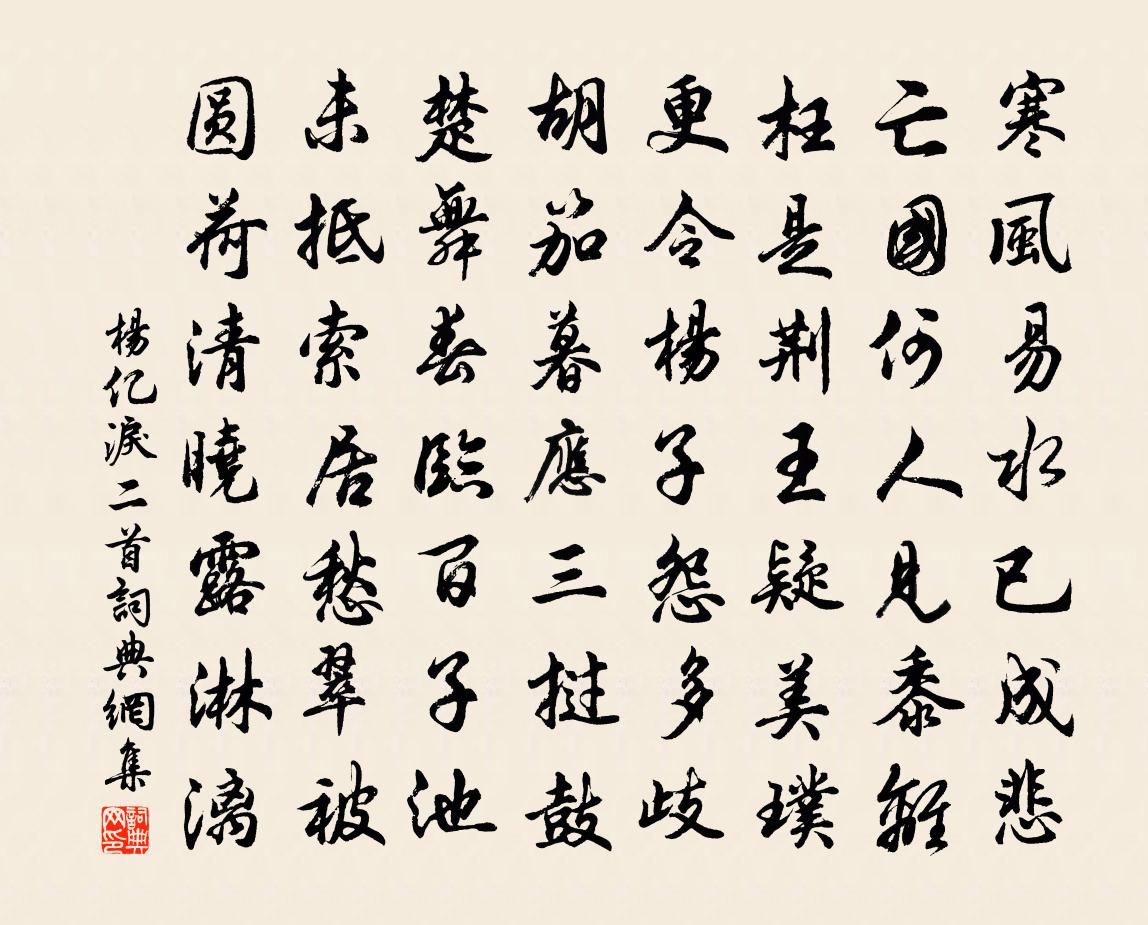 寒風易水已成悲
亡國何人見黍離
枉是荆王疑美璞
更令楊子怨多歧
胡笳暮應三撾鼓
楚舞春臨百子池
未抵索居愁翠被
圓荷清曉露淋漓
楊億淚二首詞典網集
詞典网印